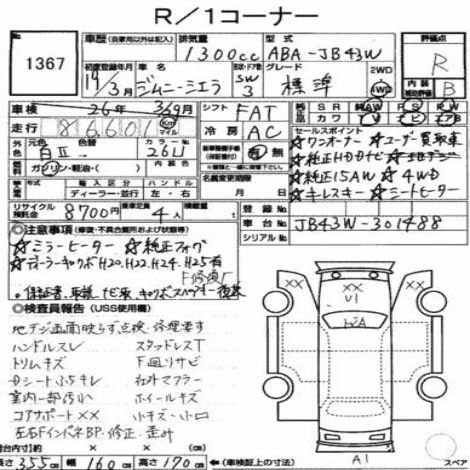 R／1コーナー
1367
車歴 (自家用以外は記入)
排気量 1300cc
型式 ABA-JB43W
評価点 R
初度登録 19/3月
車名 ジムニーシエラ
SW 3
グレード 標準
2WD
4WD
内装 B
車検 26年 3月
シフト FAT
S R AW P S P W
走行 86,601 Km マイル
冷房 AC
カワ T V ナビ
元色 白Ⅱ 色替 カラーNo. 26U
ガソリン・軽油・( )
輸入区分 ハンドル
ディーラー・並行 左・右
有 無
名義変更期限 月 日
セールスポイント
☆ワンオーナー ☆ユーザー買取車
☆純正HDDナビ
☆純正15AW ☆4WD
☆キーレスキー ☆シートヒーター
リサイクル預託金 8700円
乗車定員 4人
積載量
登録No.
車台No. JB43W-301488
シリアルNo.
◎注意事項 (修復・不具合箇所および状態等)
☆ミラーヒーター ☆純正フォグ
☆ディーラーキロクボ H20.H22.H24.H25有
F修復歴
保証書、取説、ナビ取、キロクボ、スペアキー後送
◎検査員報告 (USS使用欄)
地デジ画面映らず 点検・修理要す
ハンドルスレ スタッドレスT
トリムキズ 下廻りサビ
Dシートふちキレ 社外マフラー
室内一部汚れ ホイールキズ
コアサポートXX 小キズ・小凹
左右FインパネBP・修正・歪み
XX
XX
U1
A1
長さ 355cm 幅 160cm 高さ 170cm
(車検証上の寸法)
スペア